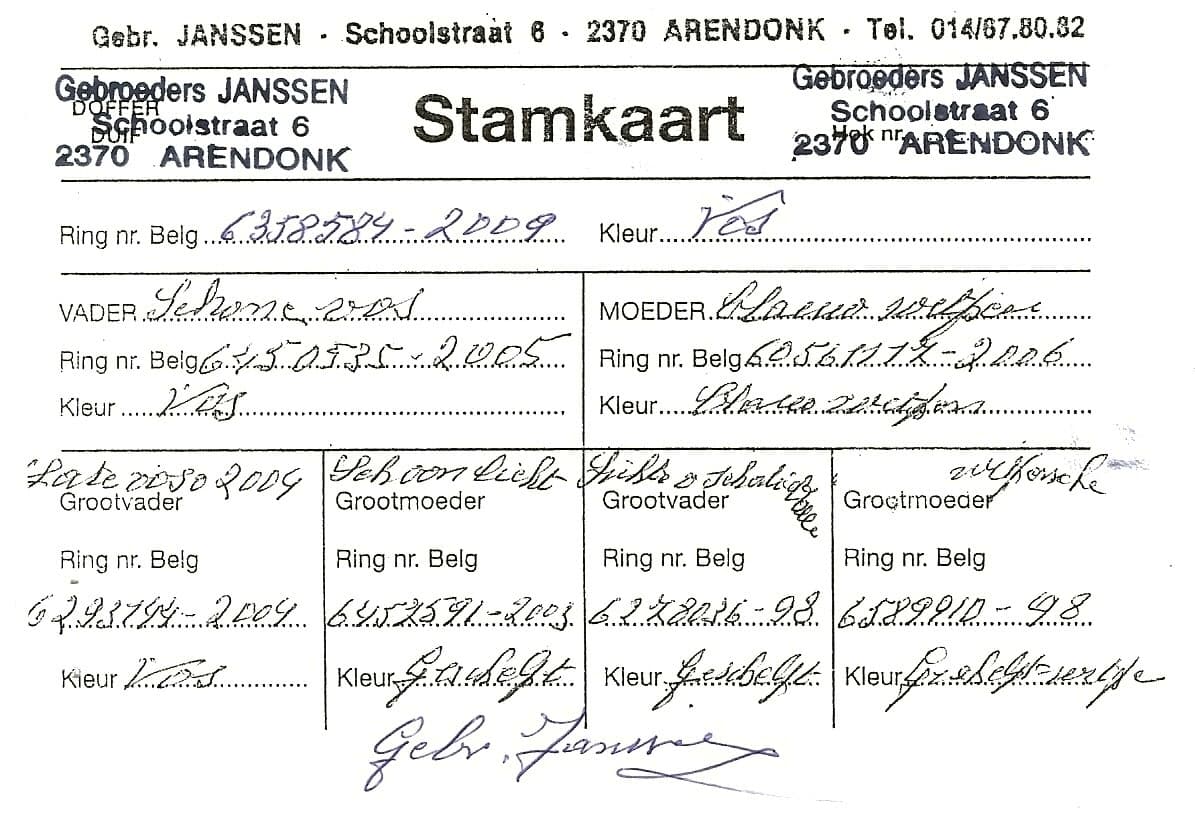 Gebr. JANSSEN · Schoolstraat 6 · 2370 ARENDONK · Tel. 014/67.80.82
Gebroeders JANSSEN
DOFFER
Schoolstraat 6
DUIF
2370 ARENDONK
Stamkaart
Gebroeders JANSSEN
Schoolstraat 6
Hok nr.
2370 ARENDONK
Ring nr. Belg 6358584-2009 Kleur Vos
VADER Schone vos
Ring nr. Belg 6450535-2005
Kleur Vos
MOEDER Blauw
Ring nr. Belg -2006
Kleur Blauw
Late 2004
Grootvader
Ring nr. Belg
6293744-2004
Kleur Vos
Schoon licht
Grootmoeder
Ring nr. Belg
6452591-2003
Kleur Geschelpt
Grootvader
Ring nr. Belg
6278036-98
Kleur Geschelpt
Grootmoeder
Ring nr. Belg
6589910-98
Kleur
Gebr. Janssen